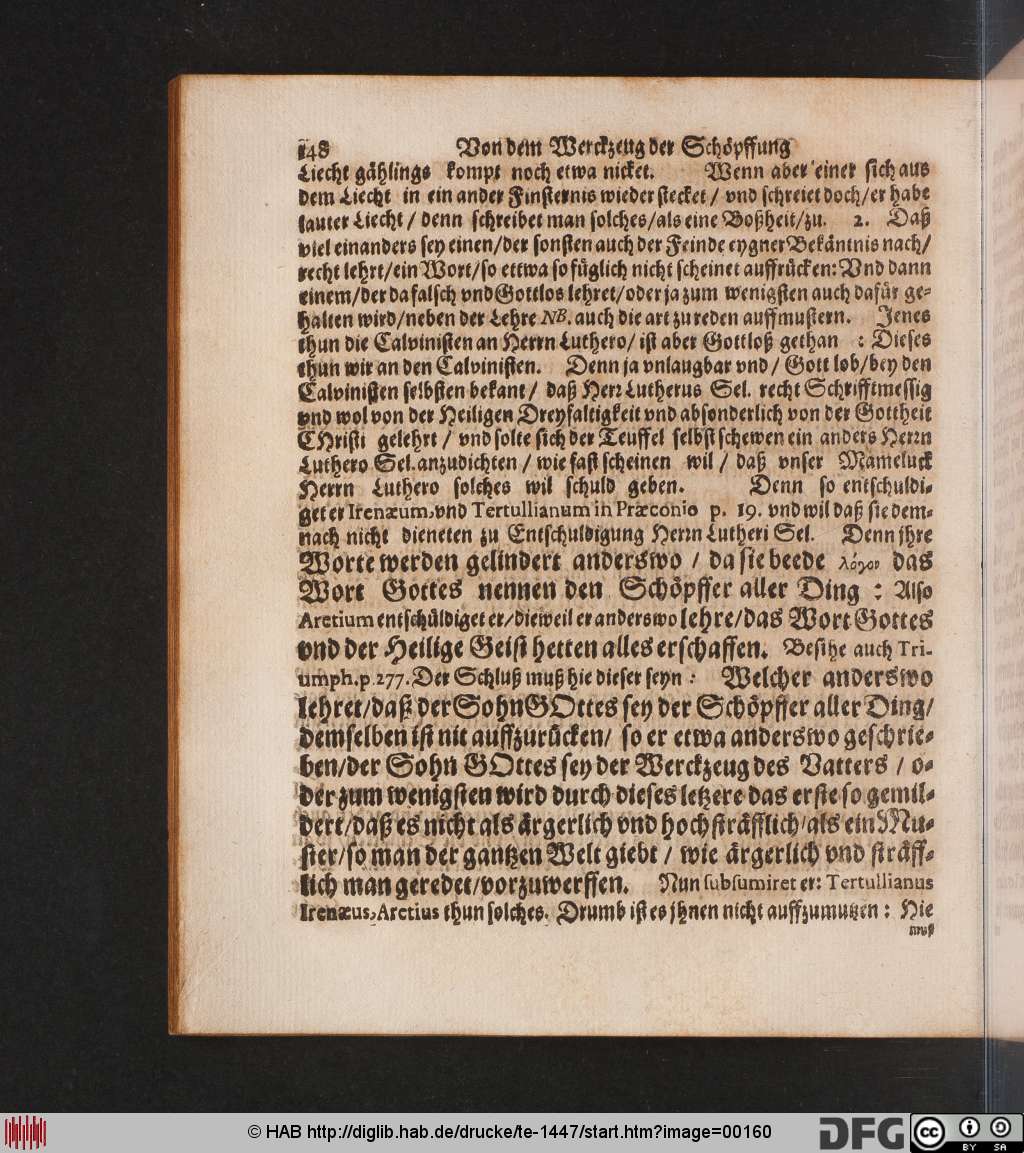 148 Von dem Werckzeug der Schöpffung
Liecht gählings kompt noch etwa nicket. Wenn aber einer sich aus
dem Liecht in ein ander Finsternis wieder stecket / vnd schreiet doch / er habe
lauter Liecht / denn schreibet man solches / als eine Boßheit / zu. 2. Daß
viel einanders sey einen / der sonsten auch der Feinde eygner Bekäntnis nach /
recht lehrt / ein Wort / so ettwa so füglich nicht scheinet auffrücken: Vnd dann
einem / der da falsch vnd Gottlos lehret / oder ja zum wenigsten auch dafür ge-
halten wird / neben der Lehre NB. auch die art zu reden auffmustern. Jenes
thun die Calvinisten an Herrn Luthero / ist aber Gottloß gethan : Dieses
thun wir an den Calvinisten. Denn ja vnlaugbar vnd / Gott lob / bey den
Calvinisten selbsten bekant / daß Herr Lutherus Sel. recht Schrifftmessig
vnd wol von der Heiligen Dreyfaltigkeit vnd absonderlich von der Gottheit
CHristi gelehrt / vnd solte sich der Teuffel selbst schewen ein anders Herrn
Luthero Sel. anzudichten / wie fast scheinen wil / daß vnser Mameluck
Herrn Luthero solches wil schuld geben. Denn so entschuldi-
get er Irenæum, vnd Tertullianum in Præconio p. 19. vnd wil daß sie dem-
nach nicht dieneten zu Entschuldigung Herrn Lutheri Sel. Denn jhre
Worte werden gelindert anderswo / da sie beede λόγον das
Wort Gottes nennen den Schöpffer aller Ding : Also
Aretium entschüldiget er / dieweil er anderswo lehre / das Wort Gottes
vnd der Heilige Geist hetten alles erschaffen. Besihe auch Tri-
umph. p. 277. Der Schluß muß hie dieser seyn : Welcher anderswo
lehret / daß der Sohn GOttes sey der Schöpffer aller Ding /
demselben ist nit auffzurücken / so er etwa anderswo geschrie-
ben / der Sohn GOttes sey der Werckzeug des Vatters / o-
der zum wenigsten wird durch dieses letzere das erste so gemil-
dert / daß es nicht als ärgerlich vnd hochsträfflich / als ein Mu-
ster / so man der gantzen Welt giebt / wie ärgerlich vnd sträff-
lich man geredet / vorzuwerffen. Nun subsumiret er: Tertullianus
Irenæus, Aretius thun solches. Drumb ist es jhnen nicht auffzumutzen : Hie
muß
© HAB http://diglib.hab.de/drucke/te-1447/start.htm?image=00160
DFG
cc BY SA